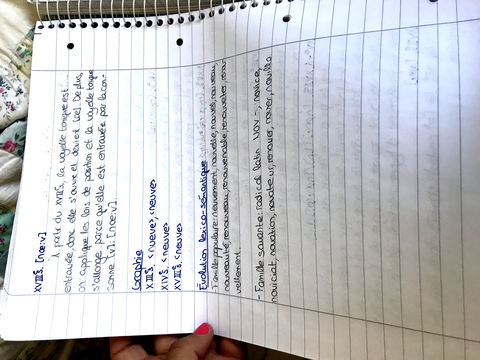 XVIIᵉS. [nœ:v]
À partir du XVIIᵉS, la voyelle tonique est
entravée donc elle s'ouvre et devient [œ]. De plus,
on applique les lois de position et la voyelle tonique
s'allonge parce qu'elle est entravée par la con-
sonne [v]. [nœ:v].
Graphie
XIIᵉS. <nueve>, <neuve>
XIVᵉS. <neuve>
XVIIᵉS. <neuve>
Évolution lexico-sémantique
- Famille populaire: neuvement, nouvelle, nouvel, nouveau,
nouveauté, renouveau, renouvelable, renouveler, renou-
vellement.
- Famille savante: radical latin NOV-, novice,
noviciat, novation, novateur, rénover, nover,